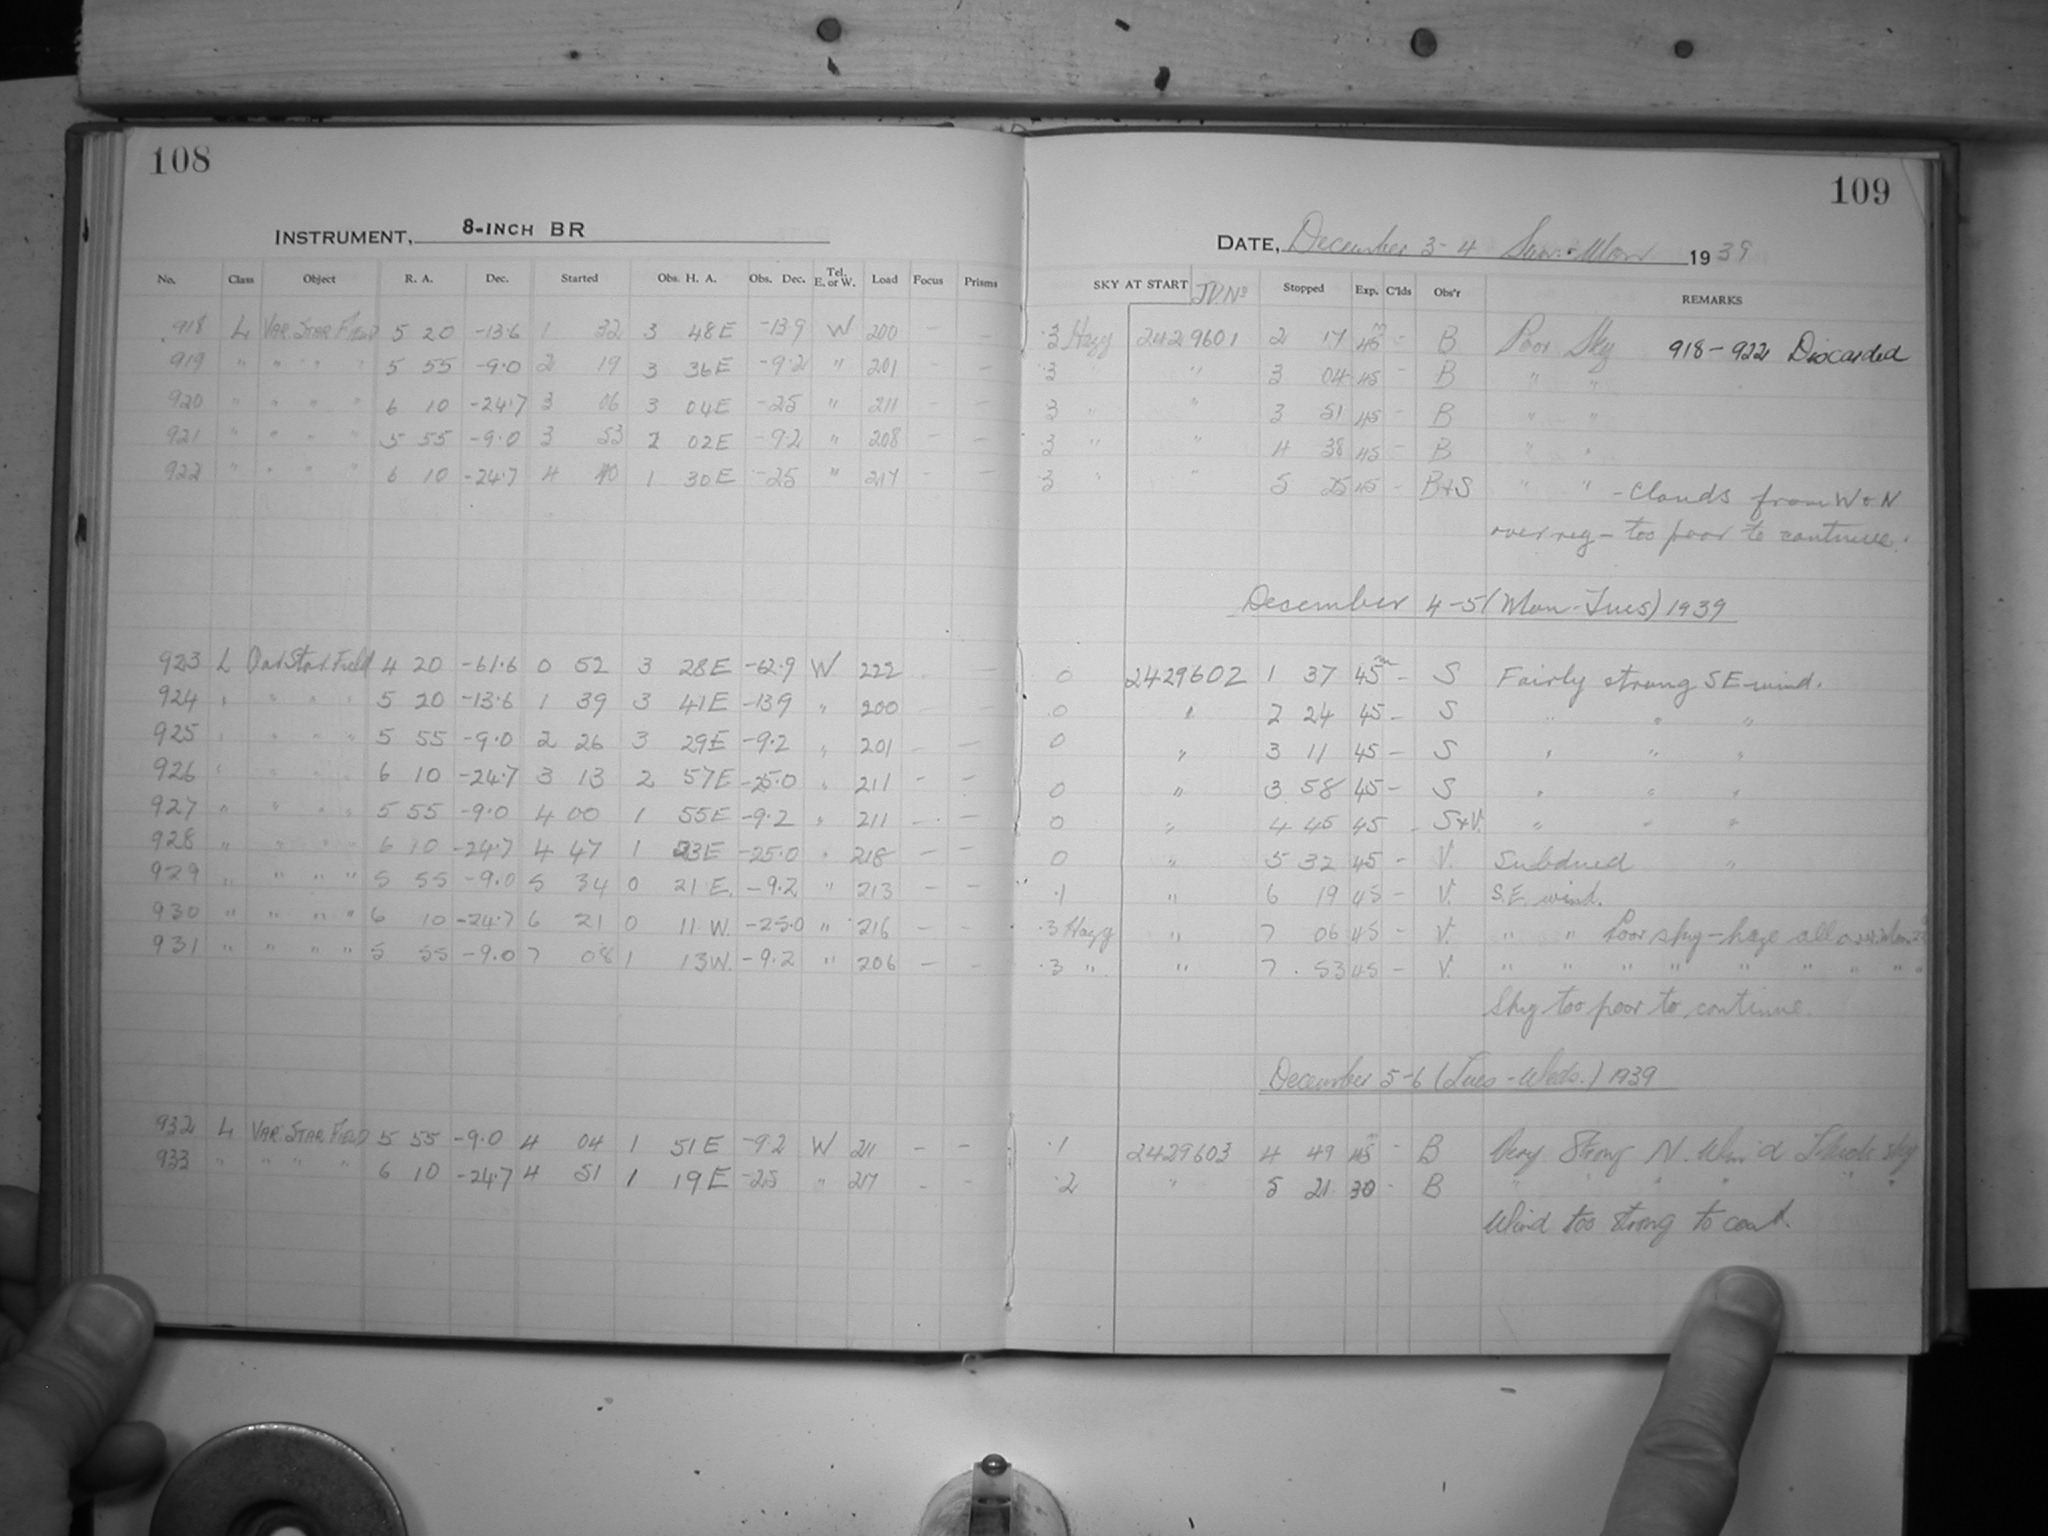 108
INSTRUMENT, 8-INCH BR
No. Class Object R. A. Dec. Started Obs. H. A. Obs. Dec. Tel. E. or W. Load Focus Prisms
918 L VAR. STAR FIELD 5 20 -13.6 1 32 3 48E -13.9 W 200 - -
919 " " " " " 5 55 -9.0 2 19 3 36E -9.2 " 201 - -
920 " " " " " 6 10 -24.7 3 06 3 04E -25 " 211 - -
921 " " " " " 5 55 -9.0 3 53 2 02E -9.2 " 208 - -
922 " " " " " 6 10 -24.7 4 40 1 30E -25 " 217 - -
923 L Var Star Field 4 20 -61.6 0 52 3 28E -62.9 W 222 - -
924 " " " " " 5 20 -13.6 1 39 3 41E -13.9 " 200 - -
925 " " " " " 5 55 -9.0 2 26 3 29E -9.2 " 201 - -
926 " " " " " 6 10 -24.7 3 13 2 57E -25.0 " 211 - -
927 " " " " " 5 55 -9.0 4 00 1 55E -9.2 " 211 - -
928 " " " " " 6 10 -24.7 4 47 1 23E -25.0 " 218 - -
929 " " " " " 5 55 -9.0 5 34 0 21E. -9.2 " 213 - -
930 " " " " " 6 10 -24.7 6 21 0 11 W. -25.0 " 216 - -
931 " " " " " 5 55 -9.0 7 08 1 13W. -9.2 " 206 - -
932 L VAR. STAR FIELD 5 55 -9.0 4 04 1 51E -9.2 W 211 - -
933 " " " " 6 10 -24.7 4 51 1 19E -25 " 217 - -
109
DATE, December 3-4 Sun.-Mon 1939
SKY AT START J.D. No Stopped Exp. C'lds Obs'r REMARKS
.3 Hazy 2429601 2 17 45m - B Poor Sky 918-922 Discarded
.3 " " 3 04 45 - B " "
3 " " 3 51 45 - B " "
3 " " 4 38 45 - B " "
3 " " 5 25 45 - B+S " " - Clouds from W & N
over reg - too poor to continue.
December 4-5 (Mon-Tues) 1939
0 2429602 1 37 45m - S Fairly strong SE wind.
.0 " 2 24 45 - S " " "
0 " 3 11 45 - S " " "
0 " 3 58 45 - S " " "
0 " 4 45 45 - S+V. " " "
0 " 5 32 45 - V. Subdued "
.1 " 6 19 45 - V. S.E. wind.
.3 Hazy " 7 06 45 - V. " " Poor sky - haze all over.
.3 " " 7 53 45 - V. " " " " " " " " "
Sky too poor to continue.
December 5-6 (Tues-Weds.) 1939
.1 2429603 4 49 45m - B Very Strong N. Wind sky
.2 " 5 21 30 - B " " " " " "
Wind too strong to cont.